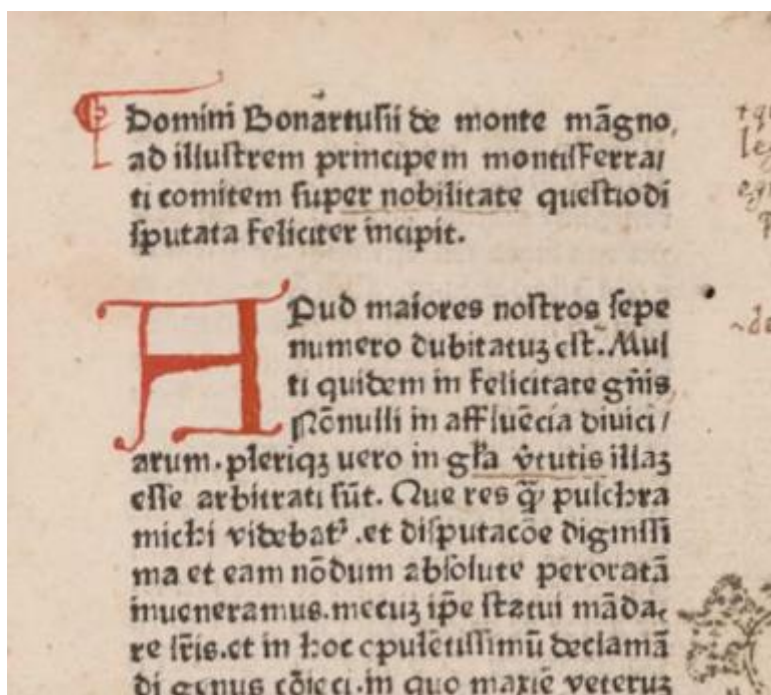 Domini Bonartusii de monte māgno,
ad illustrem principem montisFerra/
ti comitem super nobilitate questiodi
sputata Feliciter incipit.
APud maiores nostros sepe
numero dubitatuꝫ est. Mul
ti quidem in Felicitate gn̄is
Nōnulli in affluēcia diuici/
arum. pleriqꝫ uero in gl̄a v̄tutis illaꝫ
esse arbitrati sūt. Que res q̄ pulchra
michi videbat᷑. et disputacōe dignissi
ma et eam nōdum absolute peroratā
inueneramus. mecuꝫ ip̄e statui māda
re lr̄is. et in hoc opulētissimū declamā
di genus cōieci. in quo maxīe veteruꝫ